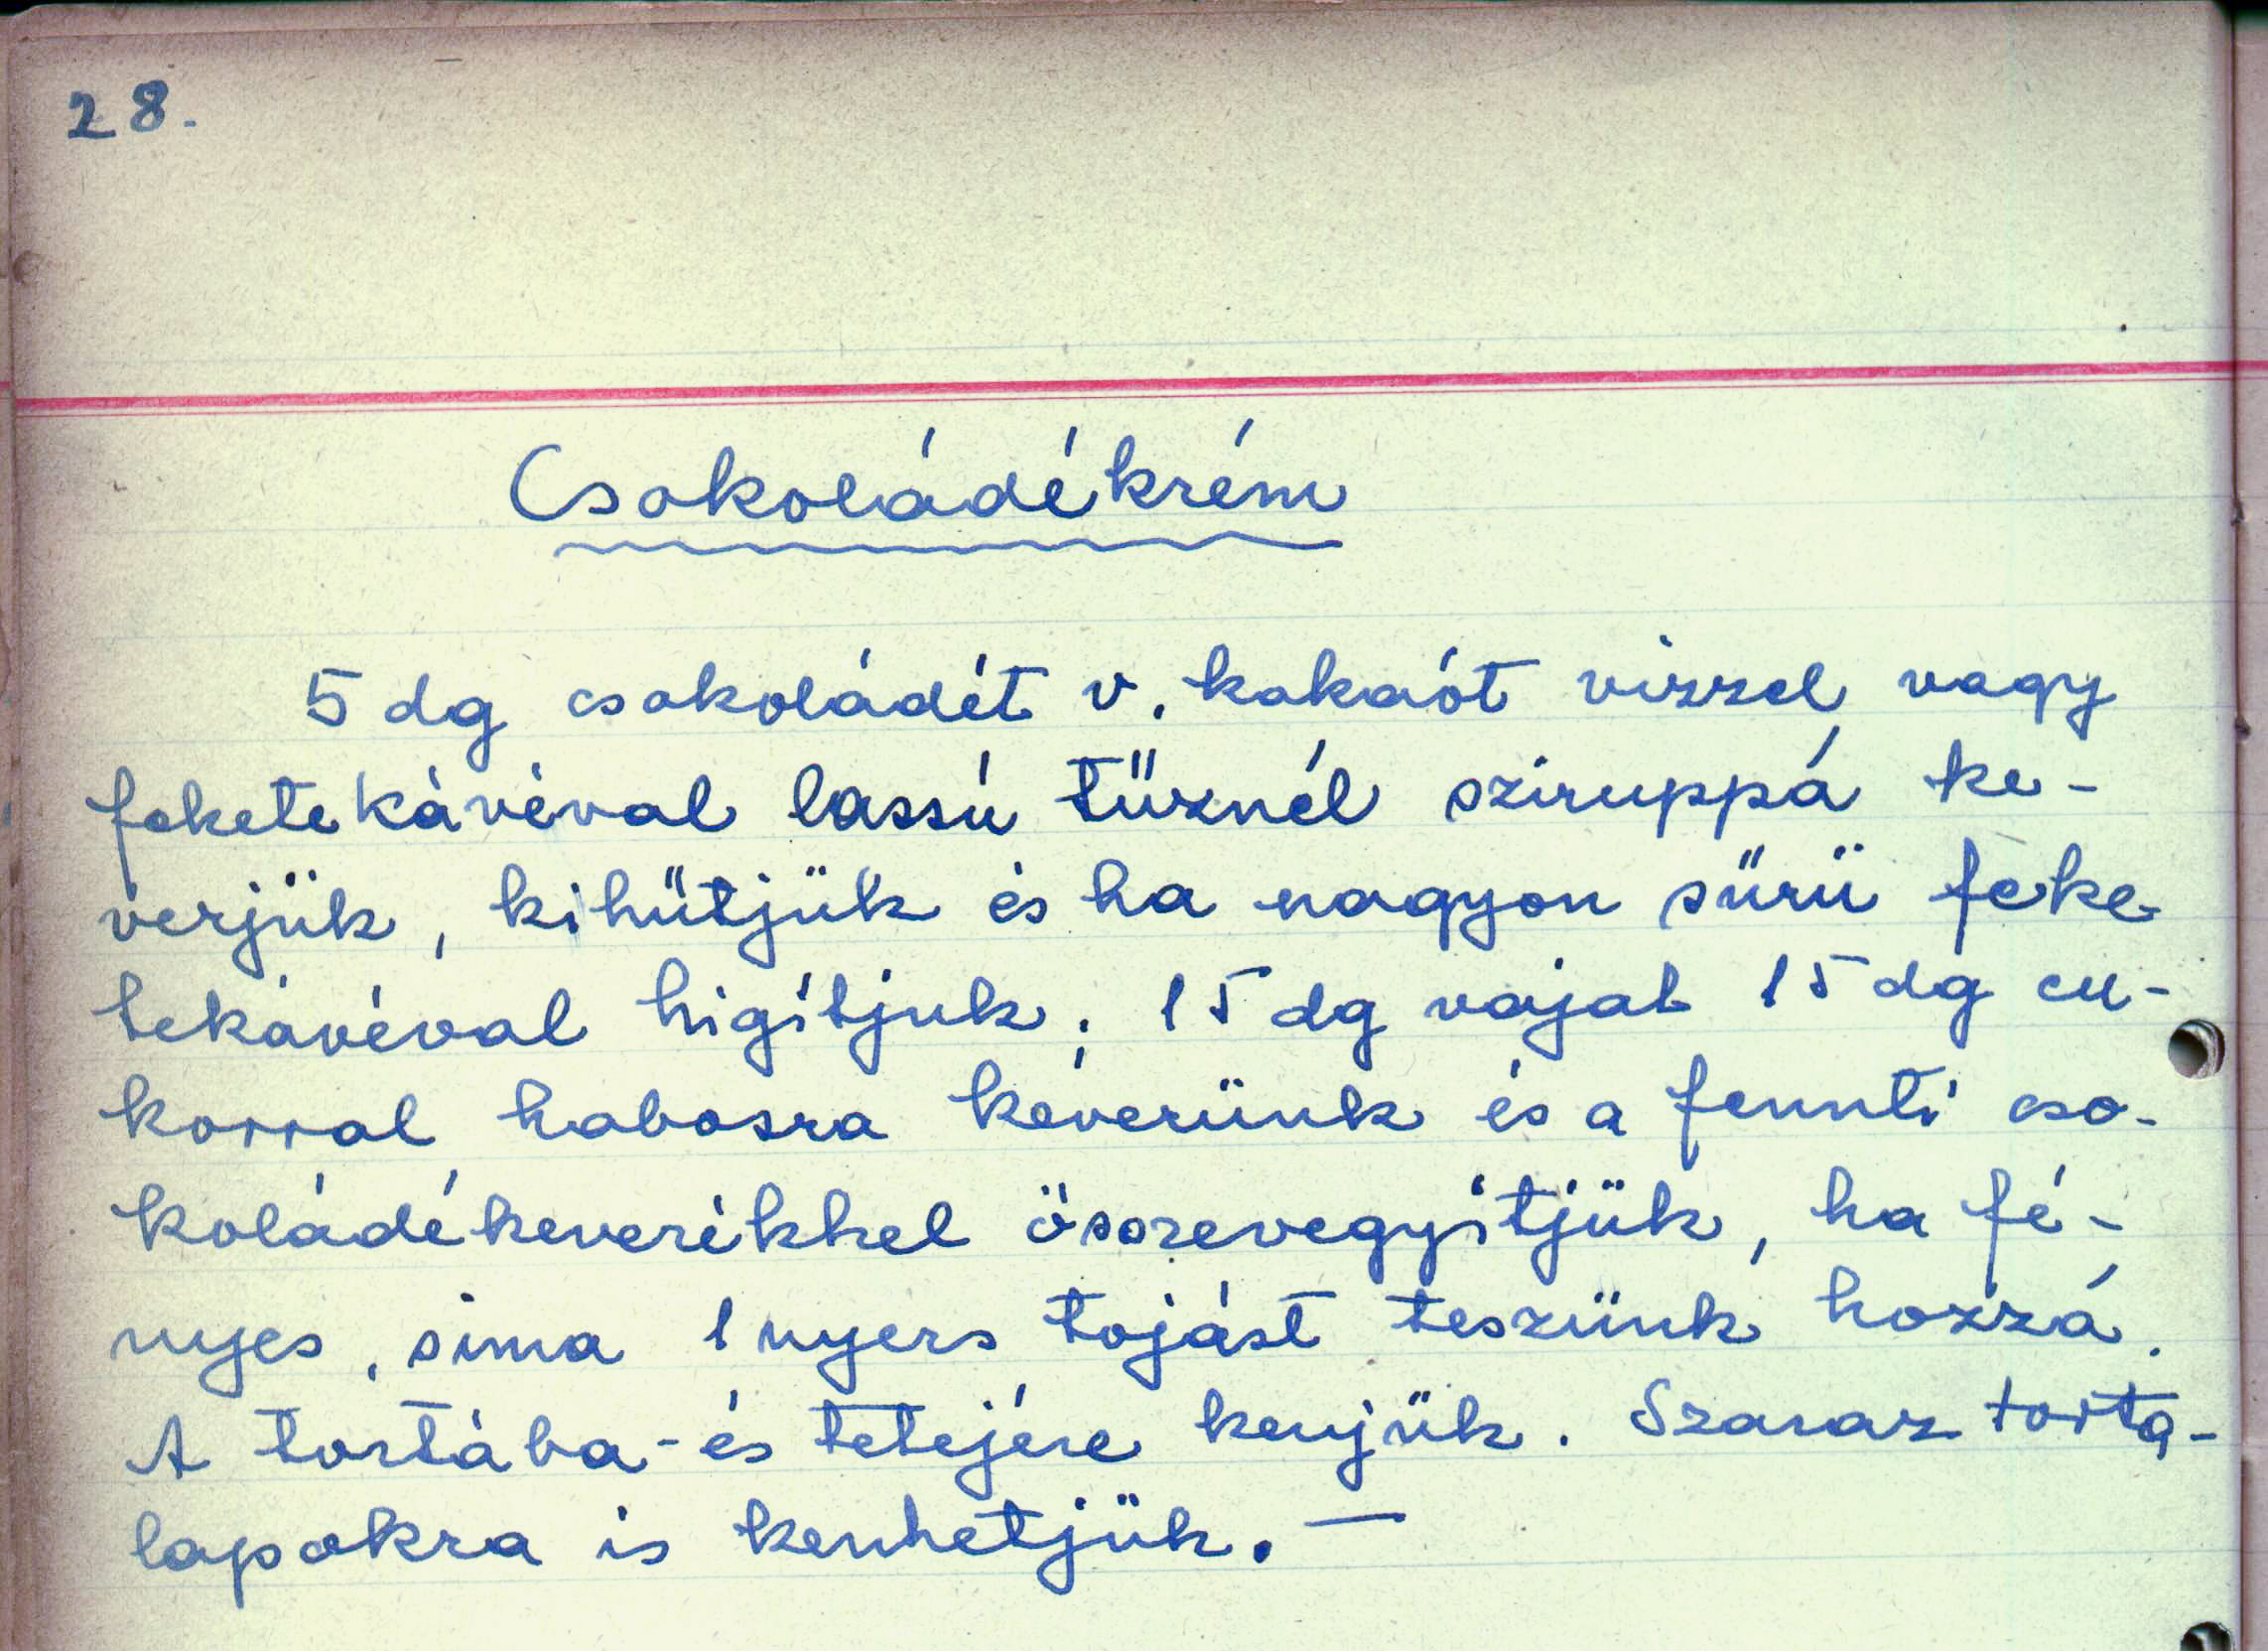 28.
Csokoládékrém
5 dg csokoládét v. kakaót vizzel vagy
feketekávéval lassú tűznél sziruppá ke-
verjük, kihűtjük és ha nagyon sűrü feke-
tekávéval higítjuk. 15 dg vajat 15 dg cu-
korral habosra keverünk és a fennti cso-
koládékeverékkel összevegyítjük, ha fé-
nyes, sima 1 nyers tojást teszünk hozzá.
A tortába-és tetejére kenjük. Szaraz torta-
lapokra is kenhetjük. —